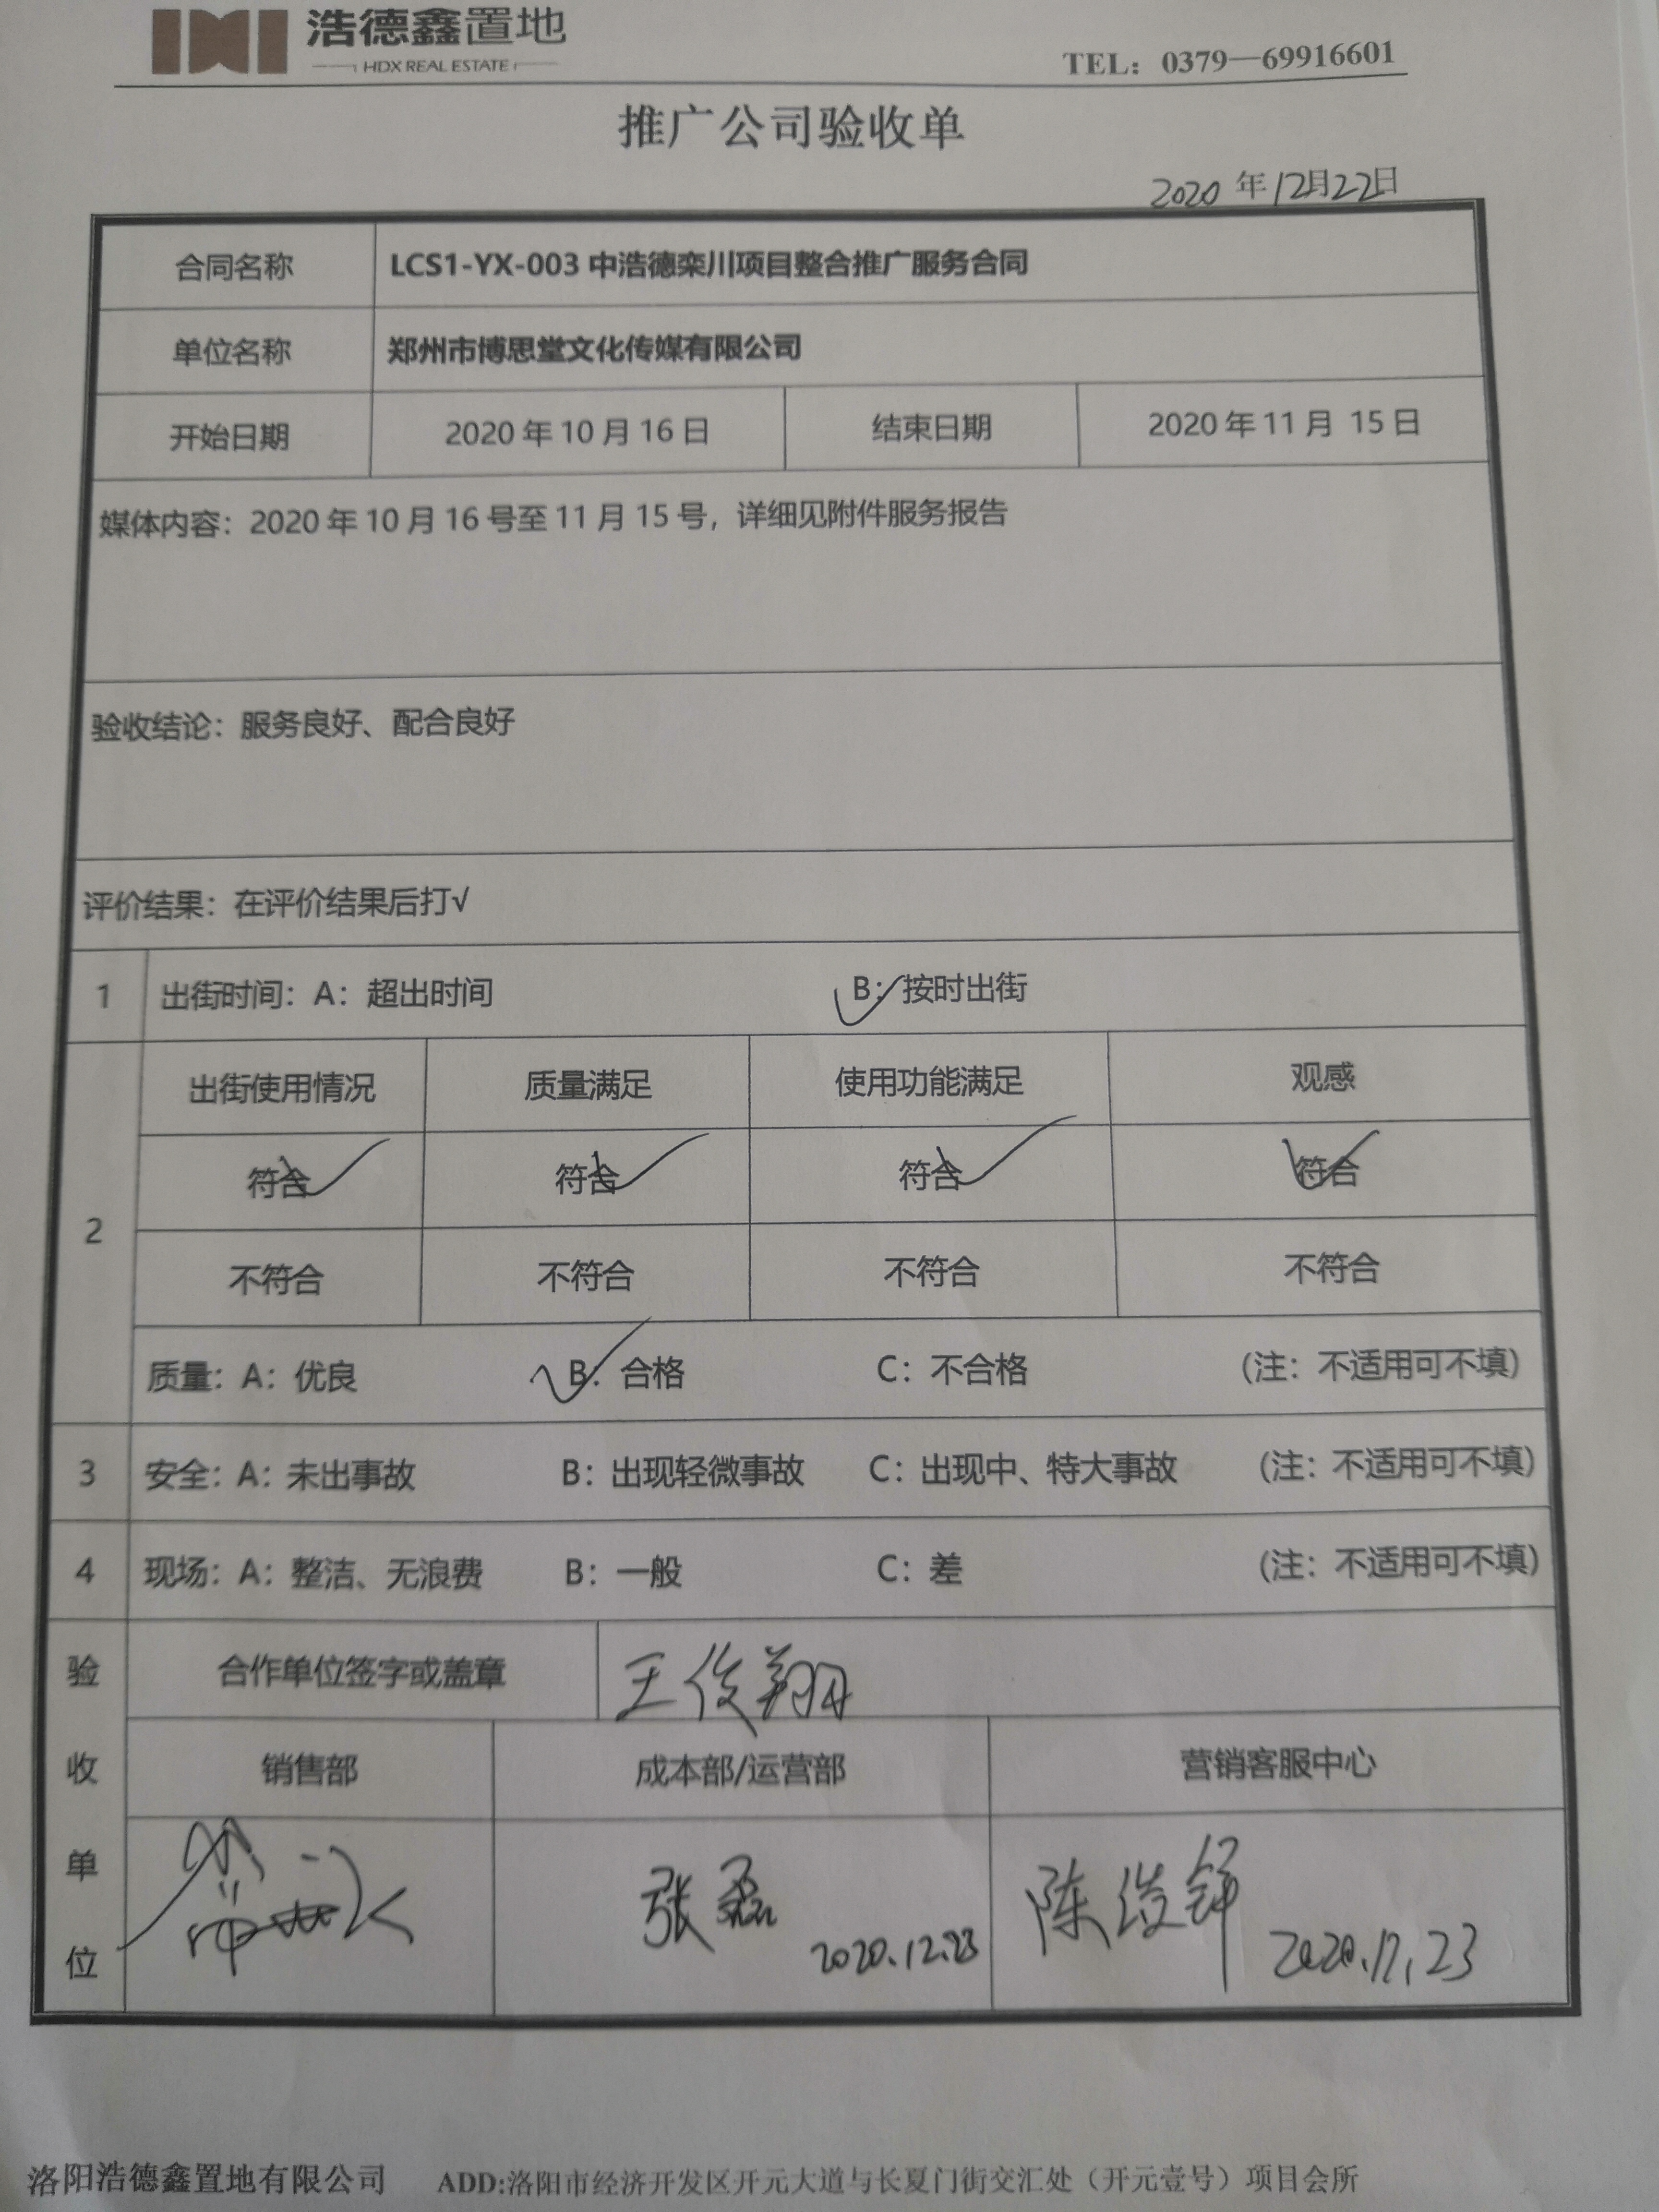 浩德鑫置地
HDX REAL ESTATE
TEL：0379—69916601
推广公司验收单
2020 年 12月22日
合同名称 LCS1-YX-003 中浩德栾川项目整合推广服务合同
单位名称 郑州市博思堂文化传媒有限公司
开始日期 2020 年 10 月 16 日 结束日期 2020 年 11 月 15 日
媒体内容：2020 年 10 月 16 号至 11 月 15 号，详细见附件服务报告
验收结论：服务良好、配合良好
评价结果：在评价结果后打√
1 出街时间：A：超出时间 B：按时出街
2 出街使用情况 质量满足 使用功能满足 观感
符合 符合 符合 符合
不符合 不符合 不符合 不符合
质量：A：优良 B：合格 C：不合格 （注：不适用可不填）
3 安全：A：未出事故 B：出现轻微事故 C：出现中、特大事故 （注：不适用可不填）
4 现场：A：整洁、无浪费 B：一般 C：差 （注：不适用可不填）
验收单位 合作单位签字或盖章 王俊翔
销售部 成本部/运营部 营销客服中心
张磊 2020.12.23 陈 2020.12.23
洛阳浩德鑫置地有限公司 ADD:洛阳市经济开发区开元大道与长夏门街交汇处（开元壹号）项目会所